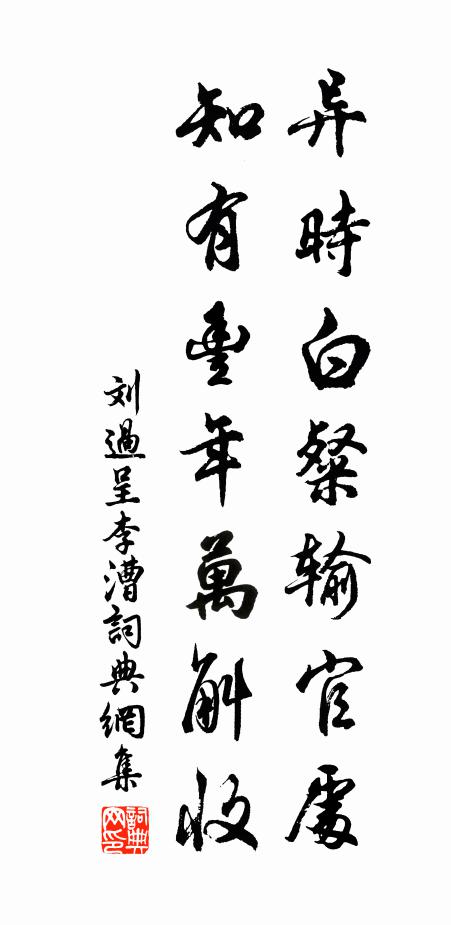 异時白粲输官處
知有豐年萬斛收
刘過呈李漕詞典網集
詞典网印